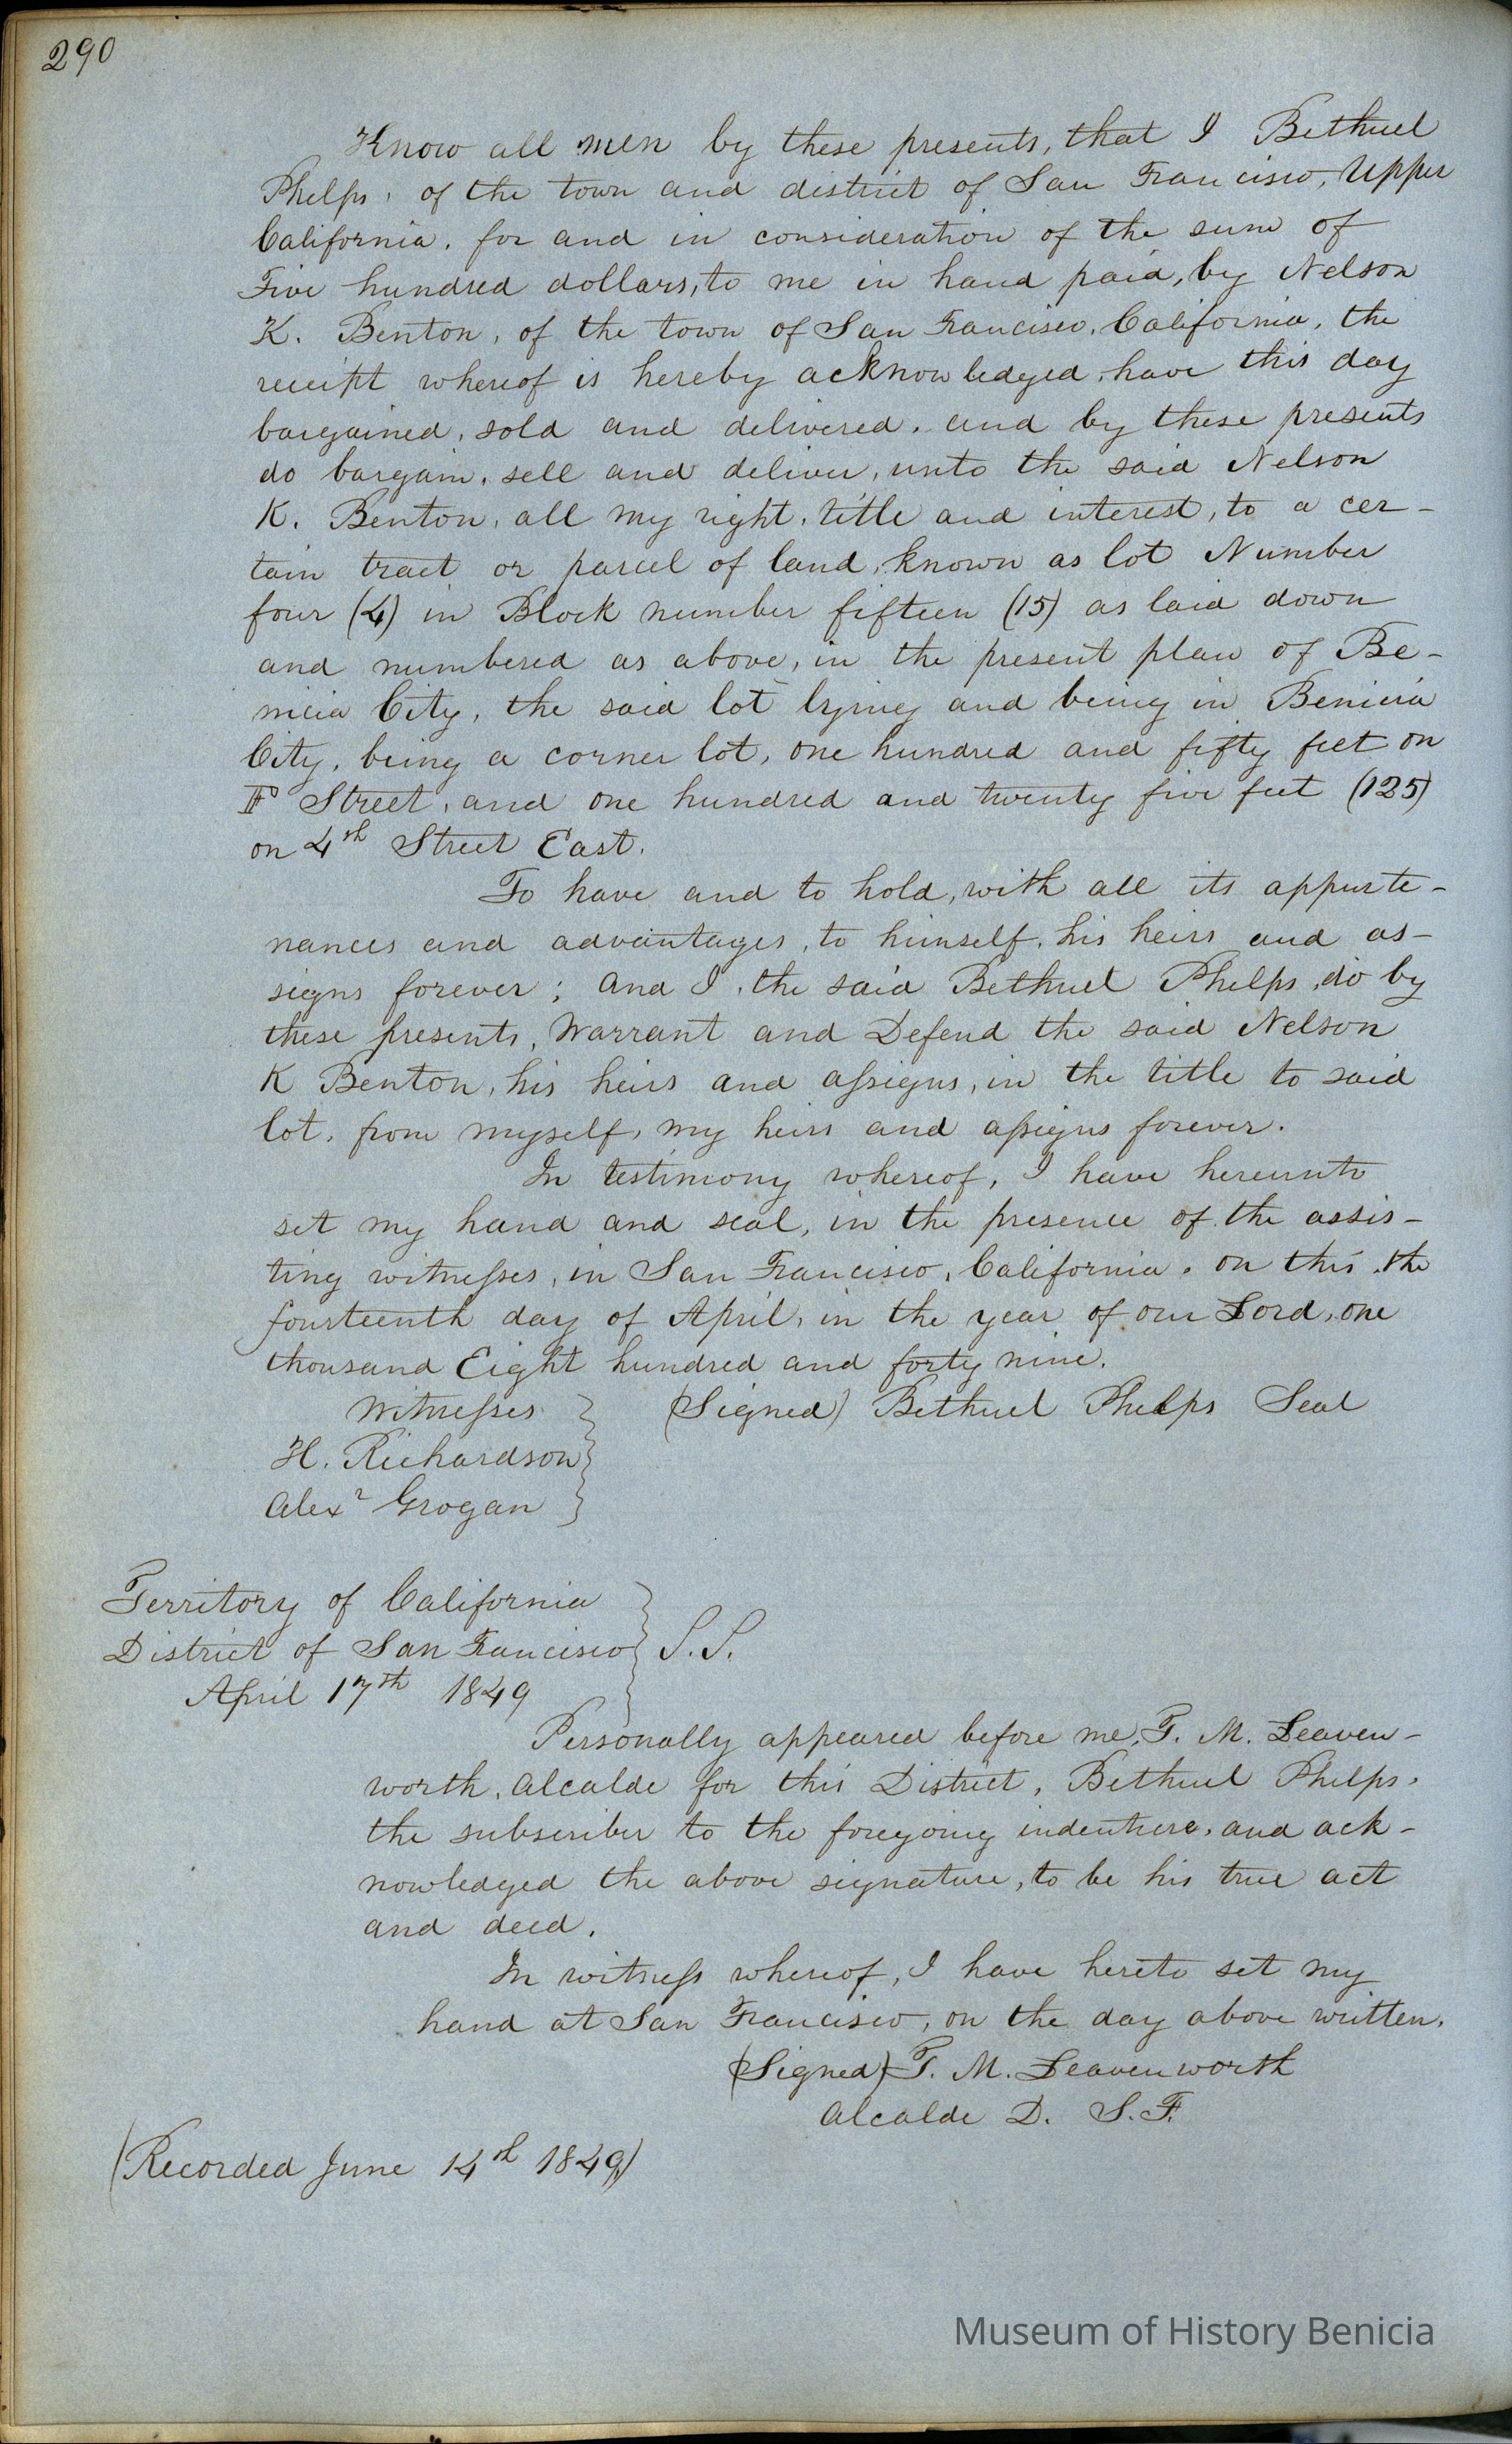 290
Know all men by these presents, that I Bethuel
Phelps, of the town and district of San Francisco, Upper
California, for and in consideration of the sum of
Five hundred dollars, to me in hand paid, by Nelson
K. Benton, of the town of San Francisco, California, the
receipt whereof is hereby acknowledged, have this day
bargained, sold and delivered, and by these presents
do bargain, sell and deliver, unto the said Nelson
K. Benton, all my right, title and interest, to a cer-
tain tract or parcel of land, known as lot Number
four (4) in Block number fifteen (15) as laid down
and numbered as above, in the present plan of Be-
nicia City, the said lot lying and being in Benicia
City, being a corner lot, one hundred and fifty feet on
F Street, and one hundred and twenty five feet (125)
on 4th Street East.
To have and to hold, with all its appurte-
nances and advantages, to himself, his heirs and as-
signs forever; and I, the said Bethuel Phelps, do by
these presents, Warrant and Defend the said Nelson
K Benton, his heirs and assigns, in the title to said
lot, from myself, my heirs and assigns forever.
In testimony whereof, I have hereunto
set my hand and seal, in the presence of the assis-
ting witnesses, in San Francisco, California, on this, the
fourteenth day of April, in the year of our Lord, one
thousand Eight hundred and forty nine.
Witnesses } (Signed) Bethuel Phelps Seal
H. Richardson }
Alexr Grogan }
Territory of California }
District of San Francisco } S.S.
April 17th 1849 }
Personally appeared before me, T. M. Leaven-
worth, Alcalde for this District, Bethuel Phelps,
the subscriber to the foregoing indenture, and ack-
nowledged the above signature, to be his true act
and deed.
In witness whereof, I have hereto set my
hand at San Francisco, on the day above written.
(Signed) T. M. Leavenworth
Alcalde D. S. F.
(Recorded June 14th 1849)
Museum of History Benicia